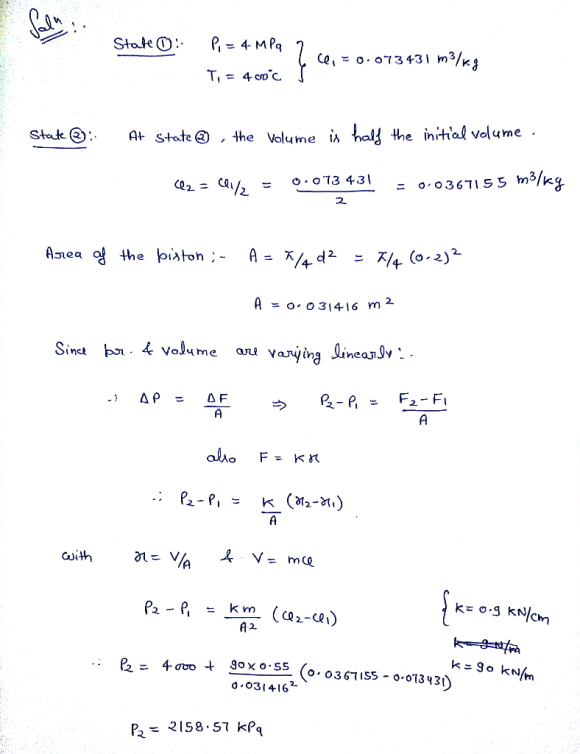 Soln :.
State ①:. P₁ = 4 MPa } v₁ = 0.073431 m³/kg
T₁ = 400°C
State ②:. At state ②, the volume is half the initial volume.
v₂ = v₁/2 = 0.073431/2 = 0.0367155 m³/kg
Area of the piston :- A = π/4 d² = π/4 (0.2)²
A = 0.031416 m²
Since pr. & volume are varying linearly :.
∴ ΔP = ΔF/A ⇒ P₂-P₁ = F₂-F₁/A
also F = Kx
∴ P₂-P₁ = K/A (x₂-x₁)
with x = V/A & V = mv
P₂ - P₁ = Km/A² (v₂-v₁) { K = 0.9 KN/cm
K = 9 N/m
K = 90 KN/m
∴ P₂ = 4000 + 90×0.55/0.031416² (0.0367155 - 0.073431)
P₂ = 2158.57 KPa